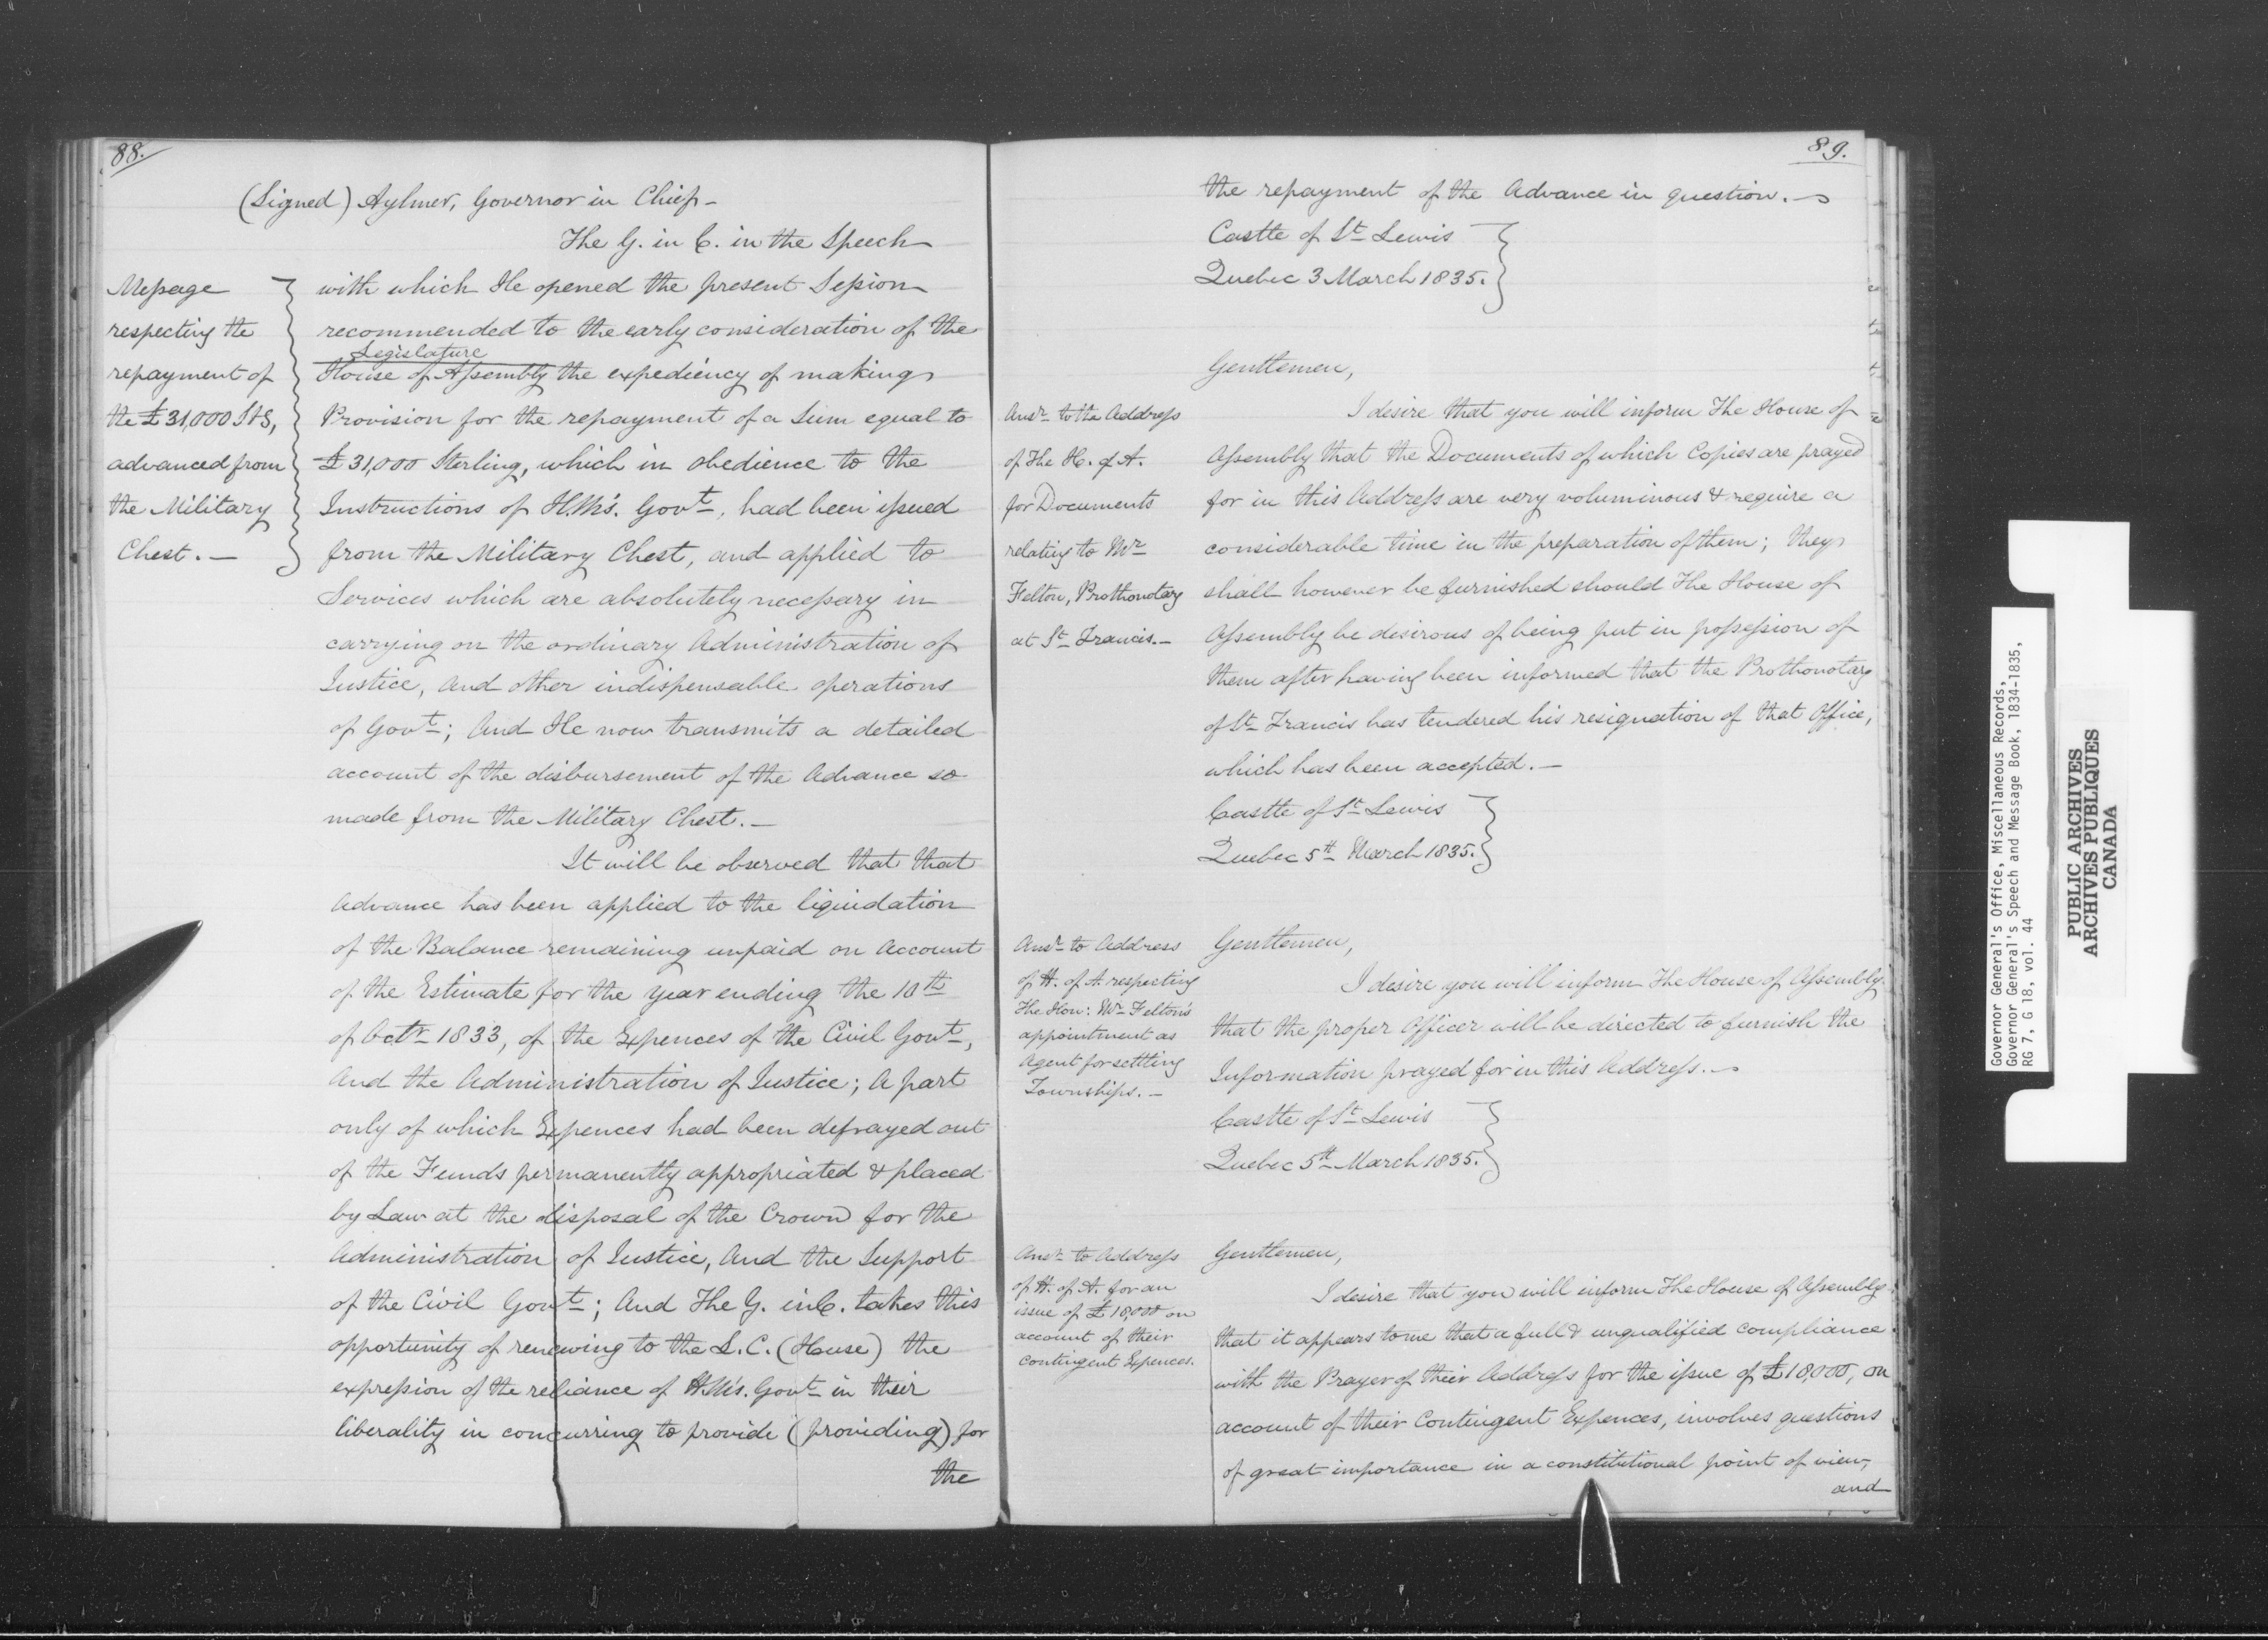 88.
(Signed) Aylmer, Governor in Chief -
The G. in C. in the Speech
with which He opened the present Session
recommended to the early consideration of the
Legislature
House of Assembly the expediency of making
Provision for the repayment of a Sum equal to
£31,000 Sterling, which in obedience to the
Instructions of H.M's. Govt, had been issued
from the Military Chest, and applied to
Services which are absolutely necessary in
carrying on the ordinary Administration of
Justice, and other indispensable operations
of Govt; And He now transmits a detailed
account of the disbursement of the Advance so
made from the Military Chest. -
It will be observed that that
Advance has been applied to the liquidation
of the Balance remaining unpaid on Account
of the Estimate for the year ending the 10th
of Octr 1833, of the Expences of the Civil Govt,
and the Administration of Justice; A part
only of which Expences had been defrayed out
of the Funds permanently appropriated & placed
by Law at the disposal of the Crown for the
Administration of Justice, And the Support
of the Civil Govt; And The G. in C. takes this
opportunity of renewing to the L. C. (House) the
expression of the reliance of H.M's. Govt in their
liberality in concurring to provide (providing) for
the
Message
respecting the
repayment of
the £31,000 Stg,
advanced from
the Military
Chest. -
89.
the repayment of the Advance in question. -
Castle of St Lewis
Quebec 3 March 1835.
Ansr to the Address
of The H. of A.
for Documents
relating to Mr
Felton, Prothonotary
at St Francis. -
Gentlemen,
I desire that you will inform The House of
Assembly that the Documents of which Copies are prayed
for in this Address are very voluminous & require a
considerable time in the preparation of them; they
shall however be furnished should The House of
Assembly be desirous of being put in possession of
them after having been informed that the Prothonotary
of St Francis has tendered his resignation of that Office,
which has been accepted. -
Castle of St Lewis
Quebec 5th March 1835.
Ansr to Address
of H. of A. respecting
The Hon: Mr Felton's
appointment as
Agent for settling
Townships. -
Gentlemen,
I desire you will inform The House of Assembly
that the proper Officer will be directed to furnish the
Information prayed for in this Address. -
Castle of St Lewis
Quebec 5th March 1835.
Ansr to Address
of H. of A. for an
issue of £18,000 on
account of their
Contingent Expences.
Gentlemen,
I desire that you will inform The House of Assembly
that it appears to me that a full & unqualified compliance
with the Prayer of their Address for the issue of £18,000, on
account of their Contingent Expences, involves questions
of great importance in a constitutional point of view,
and
Governor General's Office, Miscellaneous Records,
Governor General's Speech and Message Book, 1834-1835,
RG 7, G 18, vol. 44
PUBLIC ARCHIVES
ARCHIVES PUBLIQUES
CANADA